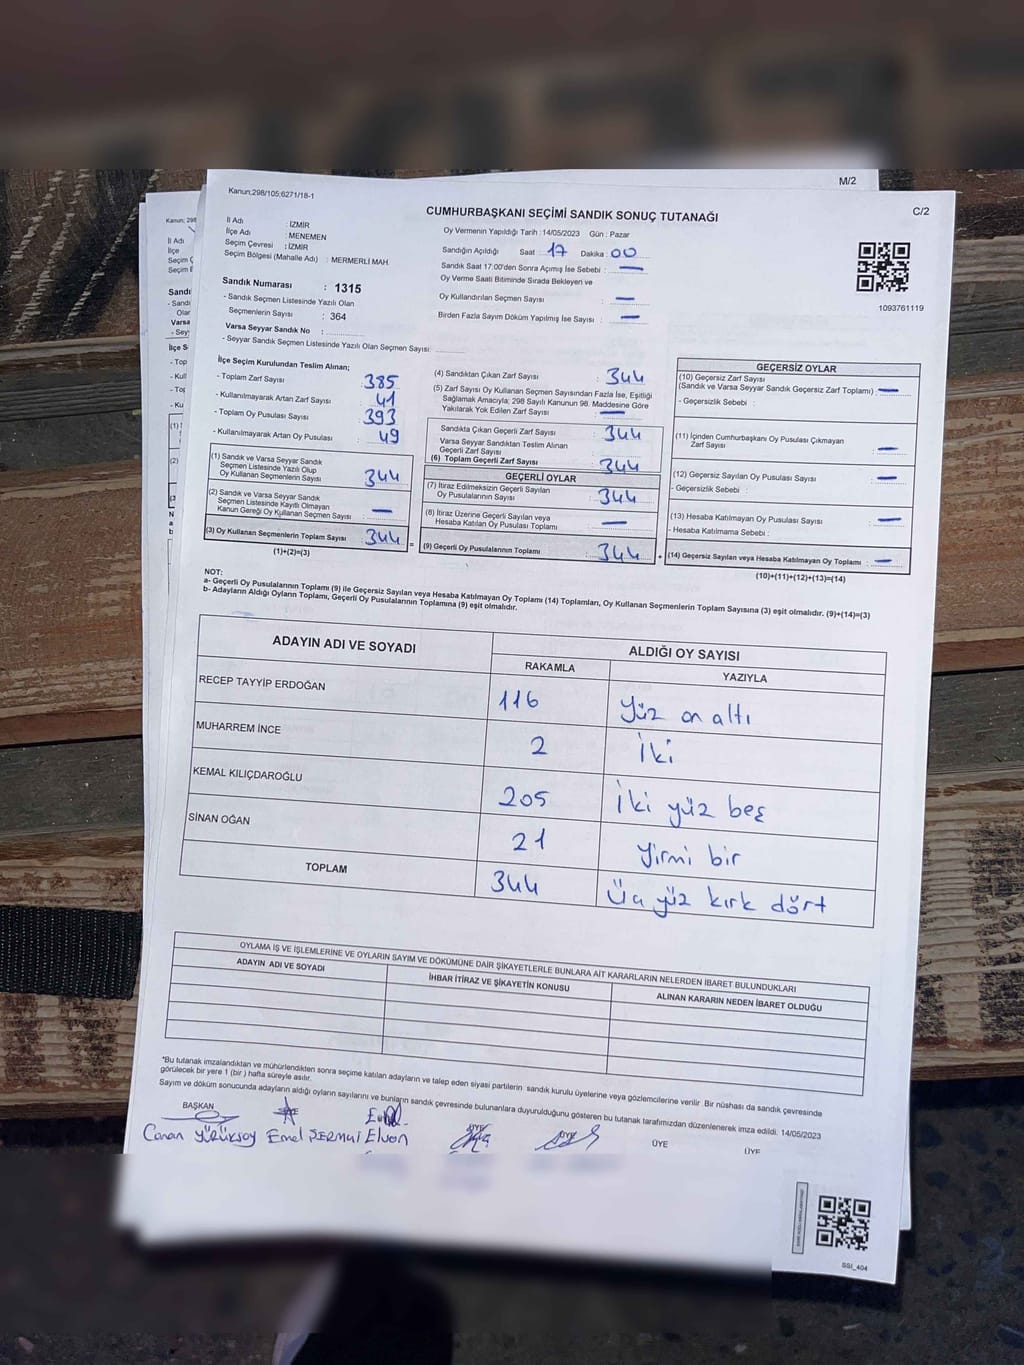 M/2
Kanun;298/105;6271/18-1
C/2
CUMHURBAŞKANI SEÇİMİ SANDIK SONUÇ TUTANAĞI
İl Adı : İZMİR
İlçe Adı : MENEMEN
Seçim Çevresi : İZMİR
Seçim Bölgesi (Mahalle Adı) : MERMERLİ MAH.
Oy Vermenin Yapıldığı Tarih : 14/05/2023 Gün : Pazar
Sandığın Açıldığı Saat : 17 Dakika : 00
Sandık Saat 17:00'den Sonra Açılmış İse Sebebi : —
Oy Verme Saati Bitiminde Sırada Bekleyen ve
Oy Kullandırılan Seçmen Sayısı : —
Birden Fazla Sayım Döküm Yapılmış İse Sayısı : —
1093761119
Sandık Numarası : 1315
- Sandık Seçmen Listesinde Yazılı Olan
Seçmenlerin Sayısı : 364
Varsa Seyyar Sandık No :
- Seyyar Sandık Seçmen Listesinde Yazılı Olan Seçmen Sayısı:
İlçe Seçim Kurulundan Teslim Alınan;
- Toplam Zarf Sayısı : 385
- Kullanılmayarak Artan Zarf Sayısı : 41
- Toplam Oy Pusulası Sayısı : 393
- Kullanılmayarak Artan Oy Pusulası : 49
(1) Sandık ve Varsa Seyyar Sandık
Seçmen Listesinde Yazılı Olup
Oy Kullanan Seçmenlerin Sayısı : 344
(2) Sandık ve Varsa Seyyar Sandık
Seçmen Listesinde Kayıtlı Olmayan
Kanun Gereği Oy Kullanan Seçmen Sayısı : —
(3) Oy Kullanan Seçmenlerin Toplam Sayısı : 344
(1)+(2)=(3)
(4) Sandıktan Çıkan Zarf Sayısı : 344
(5) Zarf Sayısı Oy Kullanan Seçmen Sayısından Fazla İse, Eşitliği
Sağlamak Amacıyla; 298 Sayılı Kanunun 98. Maddesine Göre
Yakılarak Yok Edilen Zarf Sayısı : —
Sandıkta Çıkan Geçerli Zarf Sayısı : 344
Varsa Seyyar Sandıktan Teslim Alınan
Geçerli Zarf Sayısı :
(6) Toplam Geçerli Zarf Sayısı : 344
GEÇERLİ OYLAR
(7) İtiraz Edilmeksizin Geçerli Sayılan
Oy Pusulalarının Sayısı : 344
(8) İtiraz Üzerine Geçerli Sayılan veya
Hesaba Katılan Oy Pusulası Toplamı : —
(9) Geçerli Oy Pusulalarının Toplamı : 344
GEÇERSİZ OYLAR
(10) Geçersiz Zarf Sayısı
(Sandık ve Varsa Seyyar Sandık Geçersiz Zarf Toplamı) : —
- Geçersizlik Sebebi :
(11) İçinden Cumhurbaşkanı Oy Pusulası Çıkmayan
Zarf Sayısı : —
(12) Geçersiz Sayılan Oy Pusulası Sayısı : —
- Geçersizlik Sebebi :
(13) Hesaba Katılmayan Oy Pusulası Sayısı : —
- Hesaba Katılmama Sebebi :
(14) Geçersiz Sayılan veya Hesaba Katılmayan Oy Toplamı : —
(10)+(11)+(12)+(13)=(14)
NOT:
a- Geçerli Oy Pusulalarının Toplamı (9) ile Geçersiz Sayılan veya Hesaba Katılmayan Oy Toplamı (14) Toplamları, Oy Kullanan Seçmenlerin Toplam Sayısına (3) eşit olmalıdır. (9)+(14)=(3)
b- Adayların Aldığı Oyların Toplamı, Geçerli Oy Pusulalarının Toplamına (9) eşit olmalıdır.
ADAYIN ADI VE SOYADI
ALDIĞI OY SAYISI
RAKAMLA
YAZIYLA
RECEP TAYYİP ERDOĞAN 116 Yüz on altı
MUHARREM İNCE 2 İki
KEMAL KILIÇDAROĞLU 205 İki yüz beş
SİNAN OĞAN 21 Yirmi bir
TOPLAM 344 Üç yüz kırk dört
OYLAMA İŞ VE İŞLEMLERİNE VE OYLARIN SAYIM VE DÖKÜMÜNE DAİR ŞİKAYETLERLE BUNLARA AİT KARARLARIN NELERDEN İBARET BULUNDUKLARI
ADAYIN ADI VE SOYADI
İHBAR İTİRAZ VE ŞİKAYETİN KONUSU
ALINAN KARARIN NEDEN İBARET OLDUĞU
*Bu tutanak imzalandıktan ve mühürlendikten sonra seçime katılan adayların ve talep eden siyasi partilerin sandık kurulu üyelerine veya gözlemcilerine verilir. Bir nüshası da sandık çevresinde
görülecek bir yere 1 (bir) hafta süreyle asılır.
Sayım ve döküm sonucunda adayların aldığı oyların sayılarını ve bunların sandık çevresinde bulunanlara duyurulduğunu gösteren bu tutanak tarafımızdan düzenlenerek imza edildi. 14/05/2023
BAŞKAN
Canan YÜRÜKSOY Emel Elvan
ÜYE
ÜYE
SSI_404